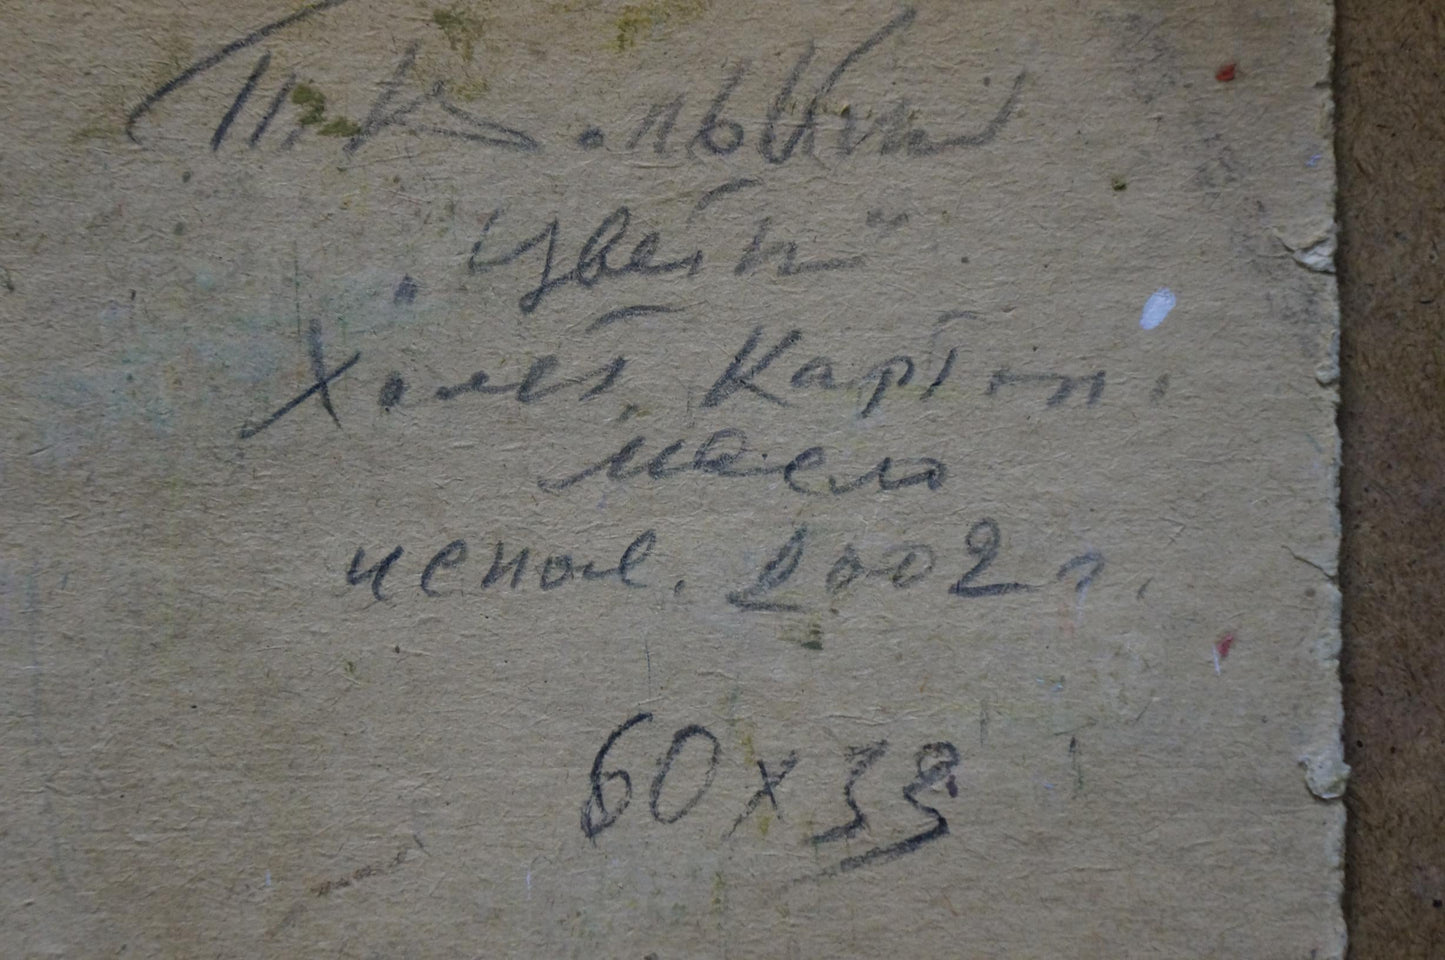 "Цветы"
Холст, картон,
масло
испол. 2002 г.
60 х 33